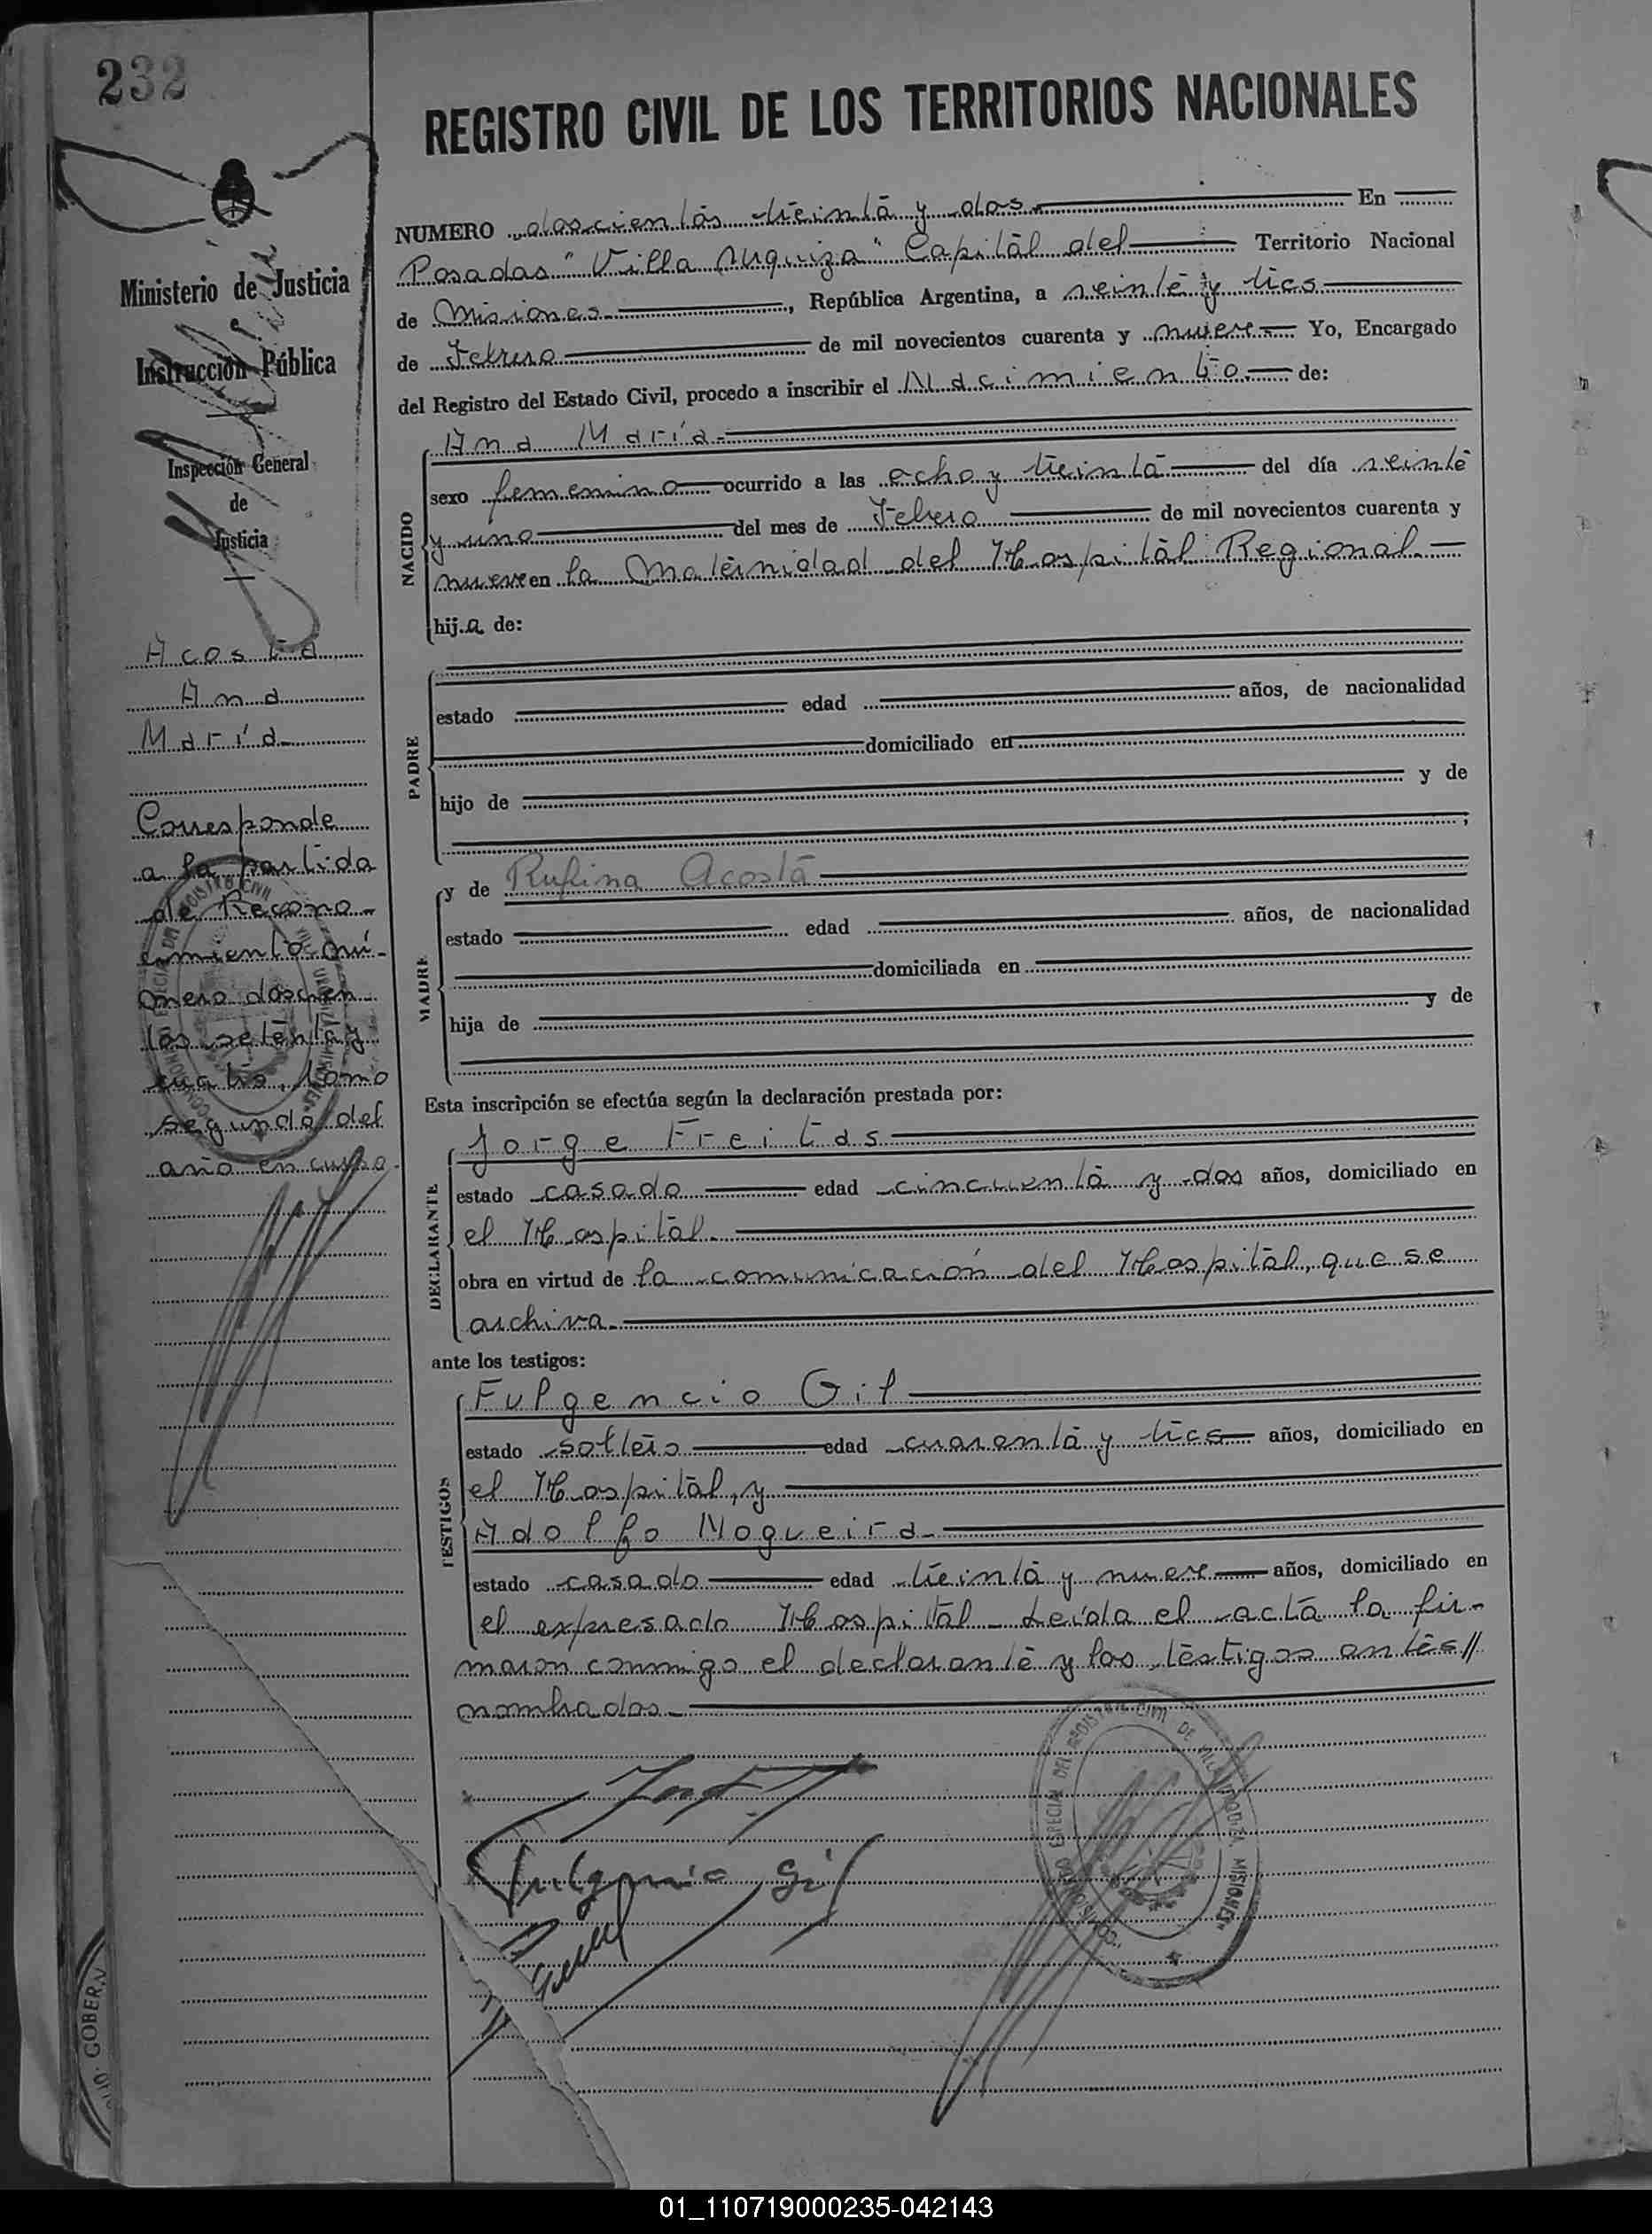 232
REGISTRO CIVIL DE LOS TERRITORIOS NACIONALES
NUMERO doscientos treinta y dos En
Posadas "Villa Urquiza" Capital del Territorio Nacional
de Misiones, República Argentina, a veinte y tres
de Febrero de mil novecientos cuarenta y nueve Yo, Encargado
del Registro del Estado Civil, procedo a inscribir el Nacimiento de:
Ministerio de Justicia
Instrucción Pública
Inspección General
de
Justicia
Acosta
Ana
María
Corresponde
a la partida
de Recono-
cimiento nú-
mero doscien
tos setenta y
cuatro, tomo
segundo del
año en curso.
NACIDO
Ana María
sexo femenino ocurrido a las ocho y treinta del día veinte
y uno del mes de Febrero de mil novecientos cuarenta y
nueve en la Maternidad del Hospital Regional.
hija de:
PADRE
estado edad años, de nacionalidad
domiciliado en
hijo de y de
;
MADRE
y de Rufina Acosta
estado edad años, de nacionalidad
domiciliada en
hija de y de
Esta inscripción se efectúa según la declaración prestada por:
DECLARANTE
Jorge Freitas
estado casado edad cincuenta y dos años, domiciliado en
el Hospital.
obra en virtud de la comunicación del Hospital, que se
archiva.
ante los testigos:
TESTIGOS
Fulgencio Gil
estado soltero edad cuarenta y tres años, domiciliado en
el Hospital, y
Adolfo Nogueira
estado casado edad treinta y nueve años, domiciliado en
el expresado Hospital. Leída el acta la fir-
maron conmigo el declarante y los testigos antes //
nombrados.
Fulgencio Gil
COMISIONADO ESPECIAL DEL REGISTRO CIVIL DE VILLA URQUIZA MISIONES
GOBERN
01_110719000235-042143